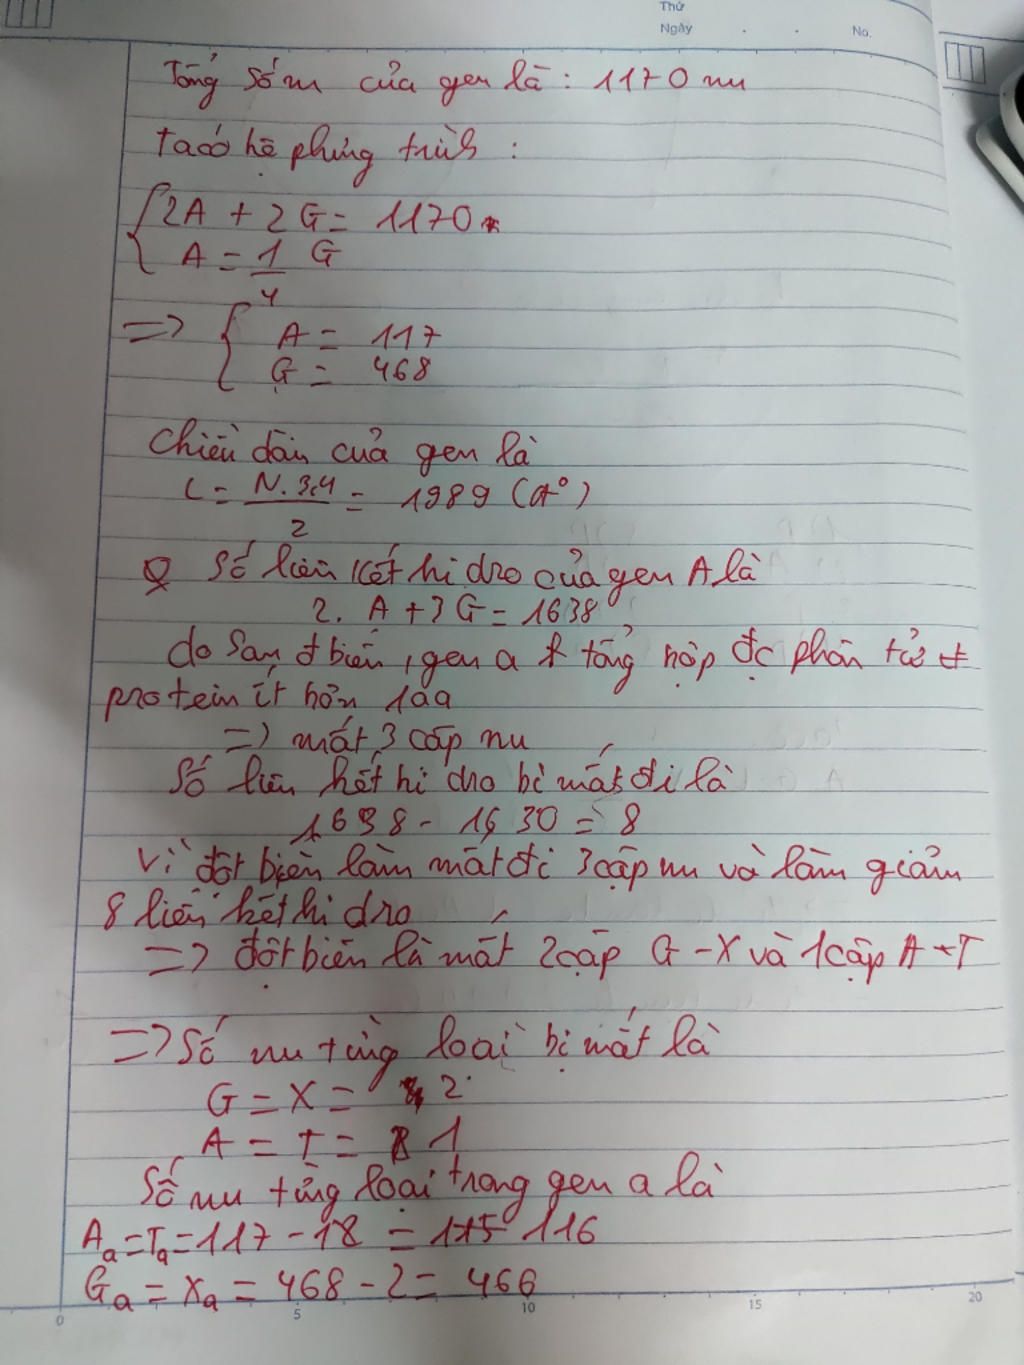 Thứ
Ngày . . No.
Tổng số nu của gen là : 1170 nu
Ta có hệ phương trình :
2A + 2G = 1170
A = 1/4 G
=> A = 117
G = 468
Chiều dài của gen là
L = N. 3,4 / 2 = 1989 (A°)
Số liên kết hi dro của gen A là
2. A + 3 G = 1638
do sau đ biến, gen a tổng hợp đc phân tử
protein ít hơn 1aa
=> mất 3 cặp nu
Số liên kết hi dro bị mất đi là
1638 - 1630 = 8
Vì đột biến làm mất đi 3 cặp nu và làm giảm
8 liên kết hi dro
=> đột biến là mất 2 cặp G - X và 1 cặp A - T
=> Số nu từng loại bị mất là
G = X = 2
A = T = 1
Số nu từng loại trong gen a là
Aa = Ta = 117 - 1 = 116
Ga = Xa = 468 - 2 = 466
0 5 10 15 20